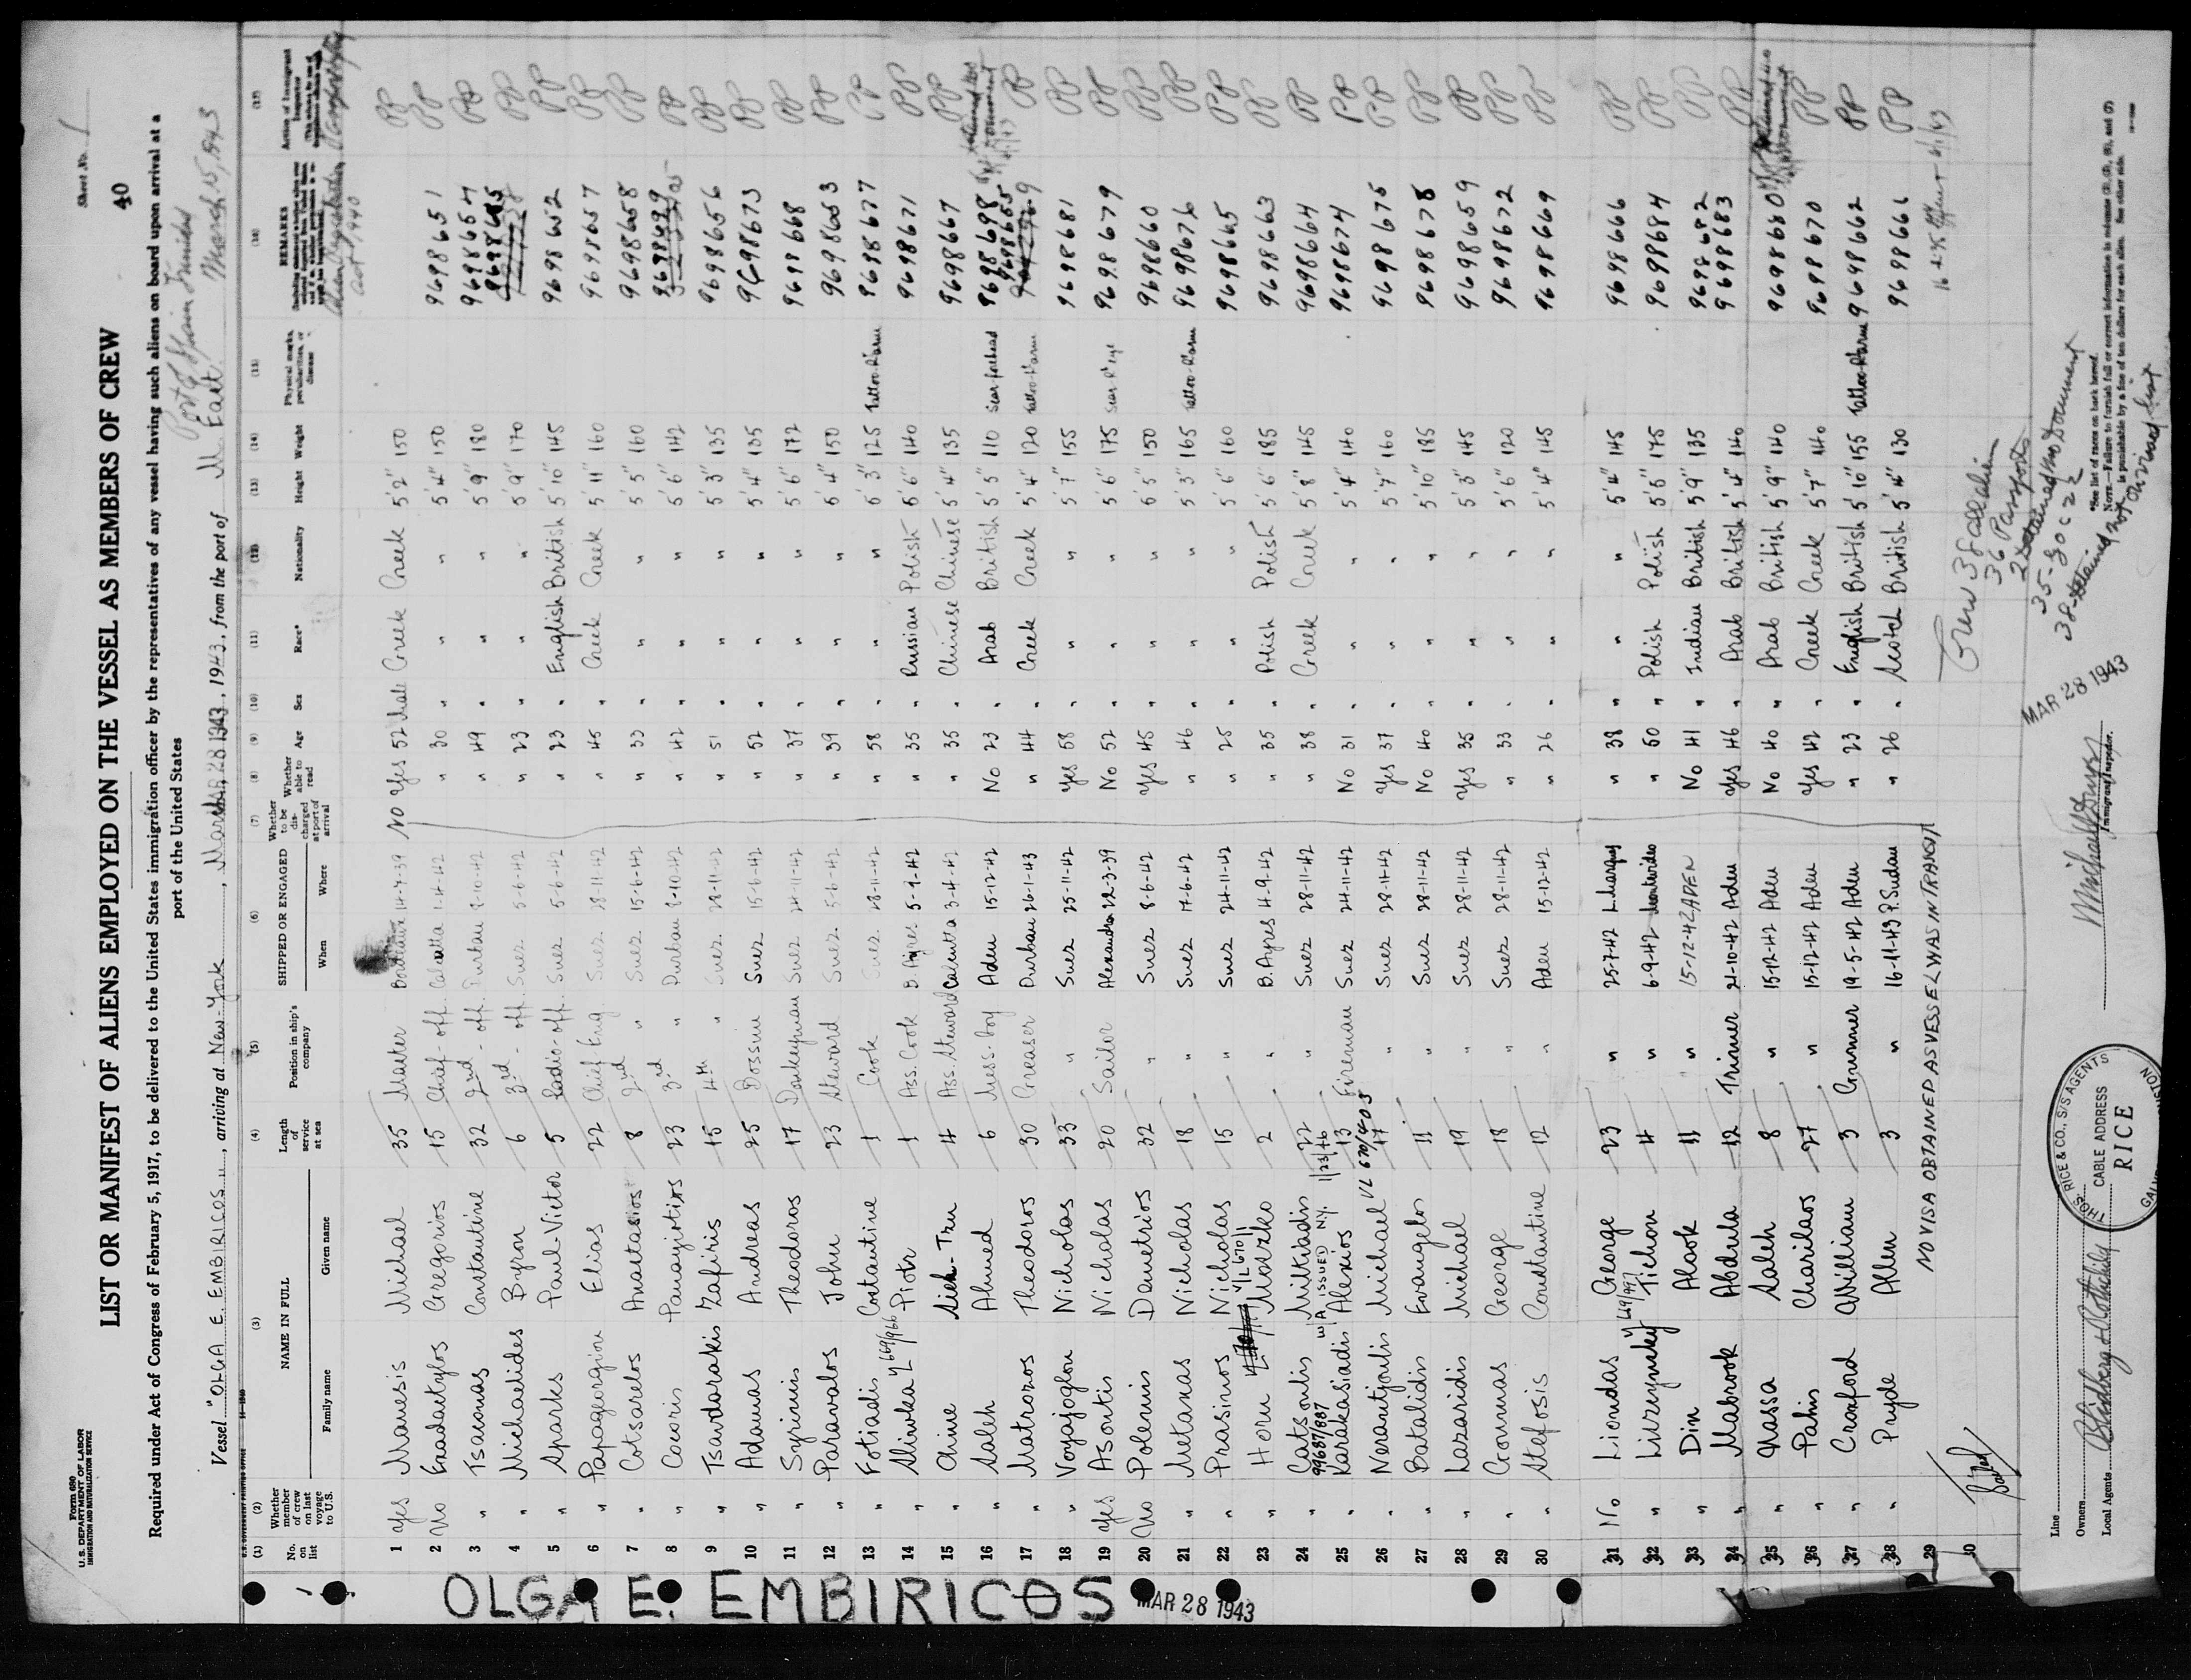 Form 680
U.S. DEPARTMENT OF LABOR
IMMIGRATION AND NATURALIZATION SERVICE
Sheet No. 1
40
LIST OR MANIFEST OF ALIENS EMPLOYED ON THE VESSEL AS MEMBERS OF CREW
Required under Act of Congress of February 5, 1917, to be delivered to the United States immigration officer by the representatives of any vessel having such aliens on board upon arrival at a
port of the United States
Port of Spain Trinidad
Vessel "OLGA E. EMBIRICOS", arriving at New-York, MAR 28 1943, 1943, from the port of M. East. March 15, 1943
(1) (2) (3) (4) (5) (6) (7) (8) (9) (10) (11) (12) (13) (14) (15) (16) (17)
No. on list
Whether member of crew on last voyage to U.S.
NAME IN FULL
Family name Given name
Length of service at sea
Position in ship's company
SHIPPED OR ENGAGED
When Where
Whether to be discharged at port of arrival
Whether able to read
Age
Sex
Race*
Nationality
Height
Weight
Physical marks, peculiarities, or disease
REMARKS
1 Yes Manesis Michael 35 Master 14-7-39 NO Yes 52 Male Greek Greek 5'2" 150 PP
2 No Exadactylos Gregorios 15 Chief-off. Calcutta 1-4-42 " 30 " " " 5'4" 150 9698651 PP
3 " Tsaounas Constantine 32 2nd-off. Durban 8-10-42 " 49 " " " 5'9" 180 9698654 PP
4 " Michaelides Byron 6 3rd-off. Suez 5-6-42 " 23 " " " 5'9" 170 PP
5 " Sparks Paul-Victor 5 Radio-off. Suez 5-6-42 " 23 " English British 5'10" 145 9698652 PP
6 " Papageorgiou Elias 22 Chief Eng. Suez 28-11-42 " 45 " Greek Greek 5'11" 160 9698657 PP
7 " Cotsarelos Anastasios 8 2nd " Suez 15-6-42 " 33 " " " 5'5" 160 9698658 PP
8 " Cocoris Panagiotis 23 3rd " Durban 8-10-42 " 42 " " " 5'6" 142 PP
9 " Tsavdarakis Zafiris 15 4th " Suez 28-11-42 " 51 " " " 5'3" 135 9698656 PP
10 " Adamas Andreas 25 Bossun Suez 15-6-42 " 52 " " " 5'4" 135 9698673 PP
11 " Syrinis Theodoros 17 Donkeyman Suez 24-11-42 " 37 " " " 5'6" 172 9698668 PP
12 " Paravalos John 23 Steward Suez 5-6-42 " 39 " " " 5'4" 150 9698653 PP
13 " Fotiadis Costantine 1 Cook Suez 28-11-42 " 58 " " " 5'3" 125 Tattoo-R'arm 9698677 PP
14 " Sliwka Piotr 1 Ass. Cook B. Ayres 5-9-42 " 35 " Russian Polish 5'6" 140 9698671 PP
15 " Chine Sieh-Tzu 4 Ass. Steward Calcutta 3-4-42 " 35 " Chinese Chinese 5'4" 135 9698667 PP
16 " Saleh Ahmed 6 Mess-boy Aden 15-12-42 No 23 " Arab British 5'5" 110 Scar-forehead 9698698
17 " Matronos Theodoros 30 Greaser Durban 26-1-43 " 44 " Greek Greek 5'4" 120 Tattoo-R'arm 9698655 PP
18 " Voyajoglou Nicholas 33 " Suez 25-11-42 Yes 58 " " " 5'7" 155 9698681 PP
19 Yes Asoutis Nicholas 20 Sailor Alexandria 22-3-39 No 52 " " " 5'6" 175 Scar-R'eye 9698679 PP
20 No Polemis Demetrios 32 " Suez 8-6-42 Yes 45 " " " 5'5" 150 9698660 PP
21 " Metaxas Nicholas 18 " Suez 17-6-42 " 46 " " " 5'3" 165 Tattoo-R'arm 9698676 PP
22 " Prasinos Nicholas 15 " Suez 24-11-42 " 25 " " " 5'6" 160 9698665 PP
23 " Horn Moszko 2 " B. Ayres 4-9-42 " 35 " Polish Polish 5'6" 185 9698663 PP
24 " Catsoulis Miltiadis 22 " Suez 28-11-42 " 38 " Greek Greek 5'8" 145 9698664 PP
25 " Karakasiadis Alexios 13 Fireman Suez 24-11-42 No 31 " " " 5'4" 140 9698674 PP
26 " Nerantjoulis Michael 17 " Suez 28-11-42 Yes 37 " " " 5'7" 160 9698675 PP
27 " Batalidis Evangelos 11 " Suez 28-11-42 No 40 " " " 5'10" 185 9698678 PP
28 " Lazaridis Michael 19 " Suez 28-11-42 Yes 35 " " " 5'3" 145 9698659 PP
29 " Grounas George 18 " Suez 28-11-42 " 33 " " " 5'6" 120 9698672 PP
30 " Stefosis Constantine 12 " Aden 15-12-42 " 26 " " " 5'4" 145 9698669 PP
31 No Lioudas George 23 " 25-7-42 L. Marques " 38 " " " 5'4" 145 9698666 PP
32 " Tichon 4 " 6-9-42 Montevideo " 50 " Polish Polish 5'5" 175 9698684 PP
33 " Din Alook 11 " 15-12-42 ADEN No 41 " Indian British 5'9" 135 9698682 PP
34 " Mabrook Abdula 12 Trimmer 21-10-42 Aden Yes 46 " Arab British 5'4" 140 9698683 PP
35 " Nassa Saleh 8 " 15-12-42 Aden No 40 " Arab British 5'9" 140 9698680
36 " Pahis Charilaos 27 " 15-12-42 Aden Yes 42 " Greek Greek 5'7" 140 9698670 PP
37 " Croxford William 3 Gunner 19-5-42 Aden " 23 " English British 5'10" 155 Tattoo-R'arm 9698662 PP
38 " Pryde Allen 3 " 16-11-43 P. Sudan " 26 " Scotch British 5'4" 130 9698661 PP
29
30
NO VISA OBTAINED AS VESSEL WAS IN TRANSIT
Crew 38 all alien
36 Passports
MAR 28 1943
Line
Owners
Local Agents
Immigrant Inspector.
THOS. RICE & CO., S/S AGENTS
CABLE ADDRESS
RICE
*See list of races on back hereof.
NOTE.—Failure to furnish full or correct information in columns (3), (5), (6), and (7)
is punishable by a fine of ten dollars for each alien. See other side.
OLGA E. EMBIRICOS
MAR 28 1943